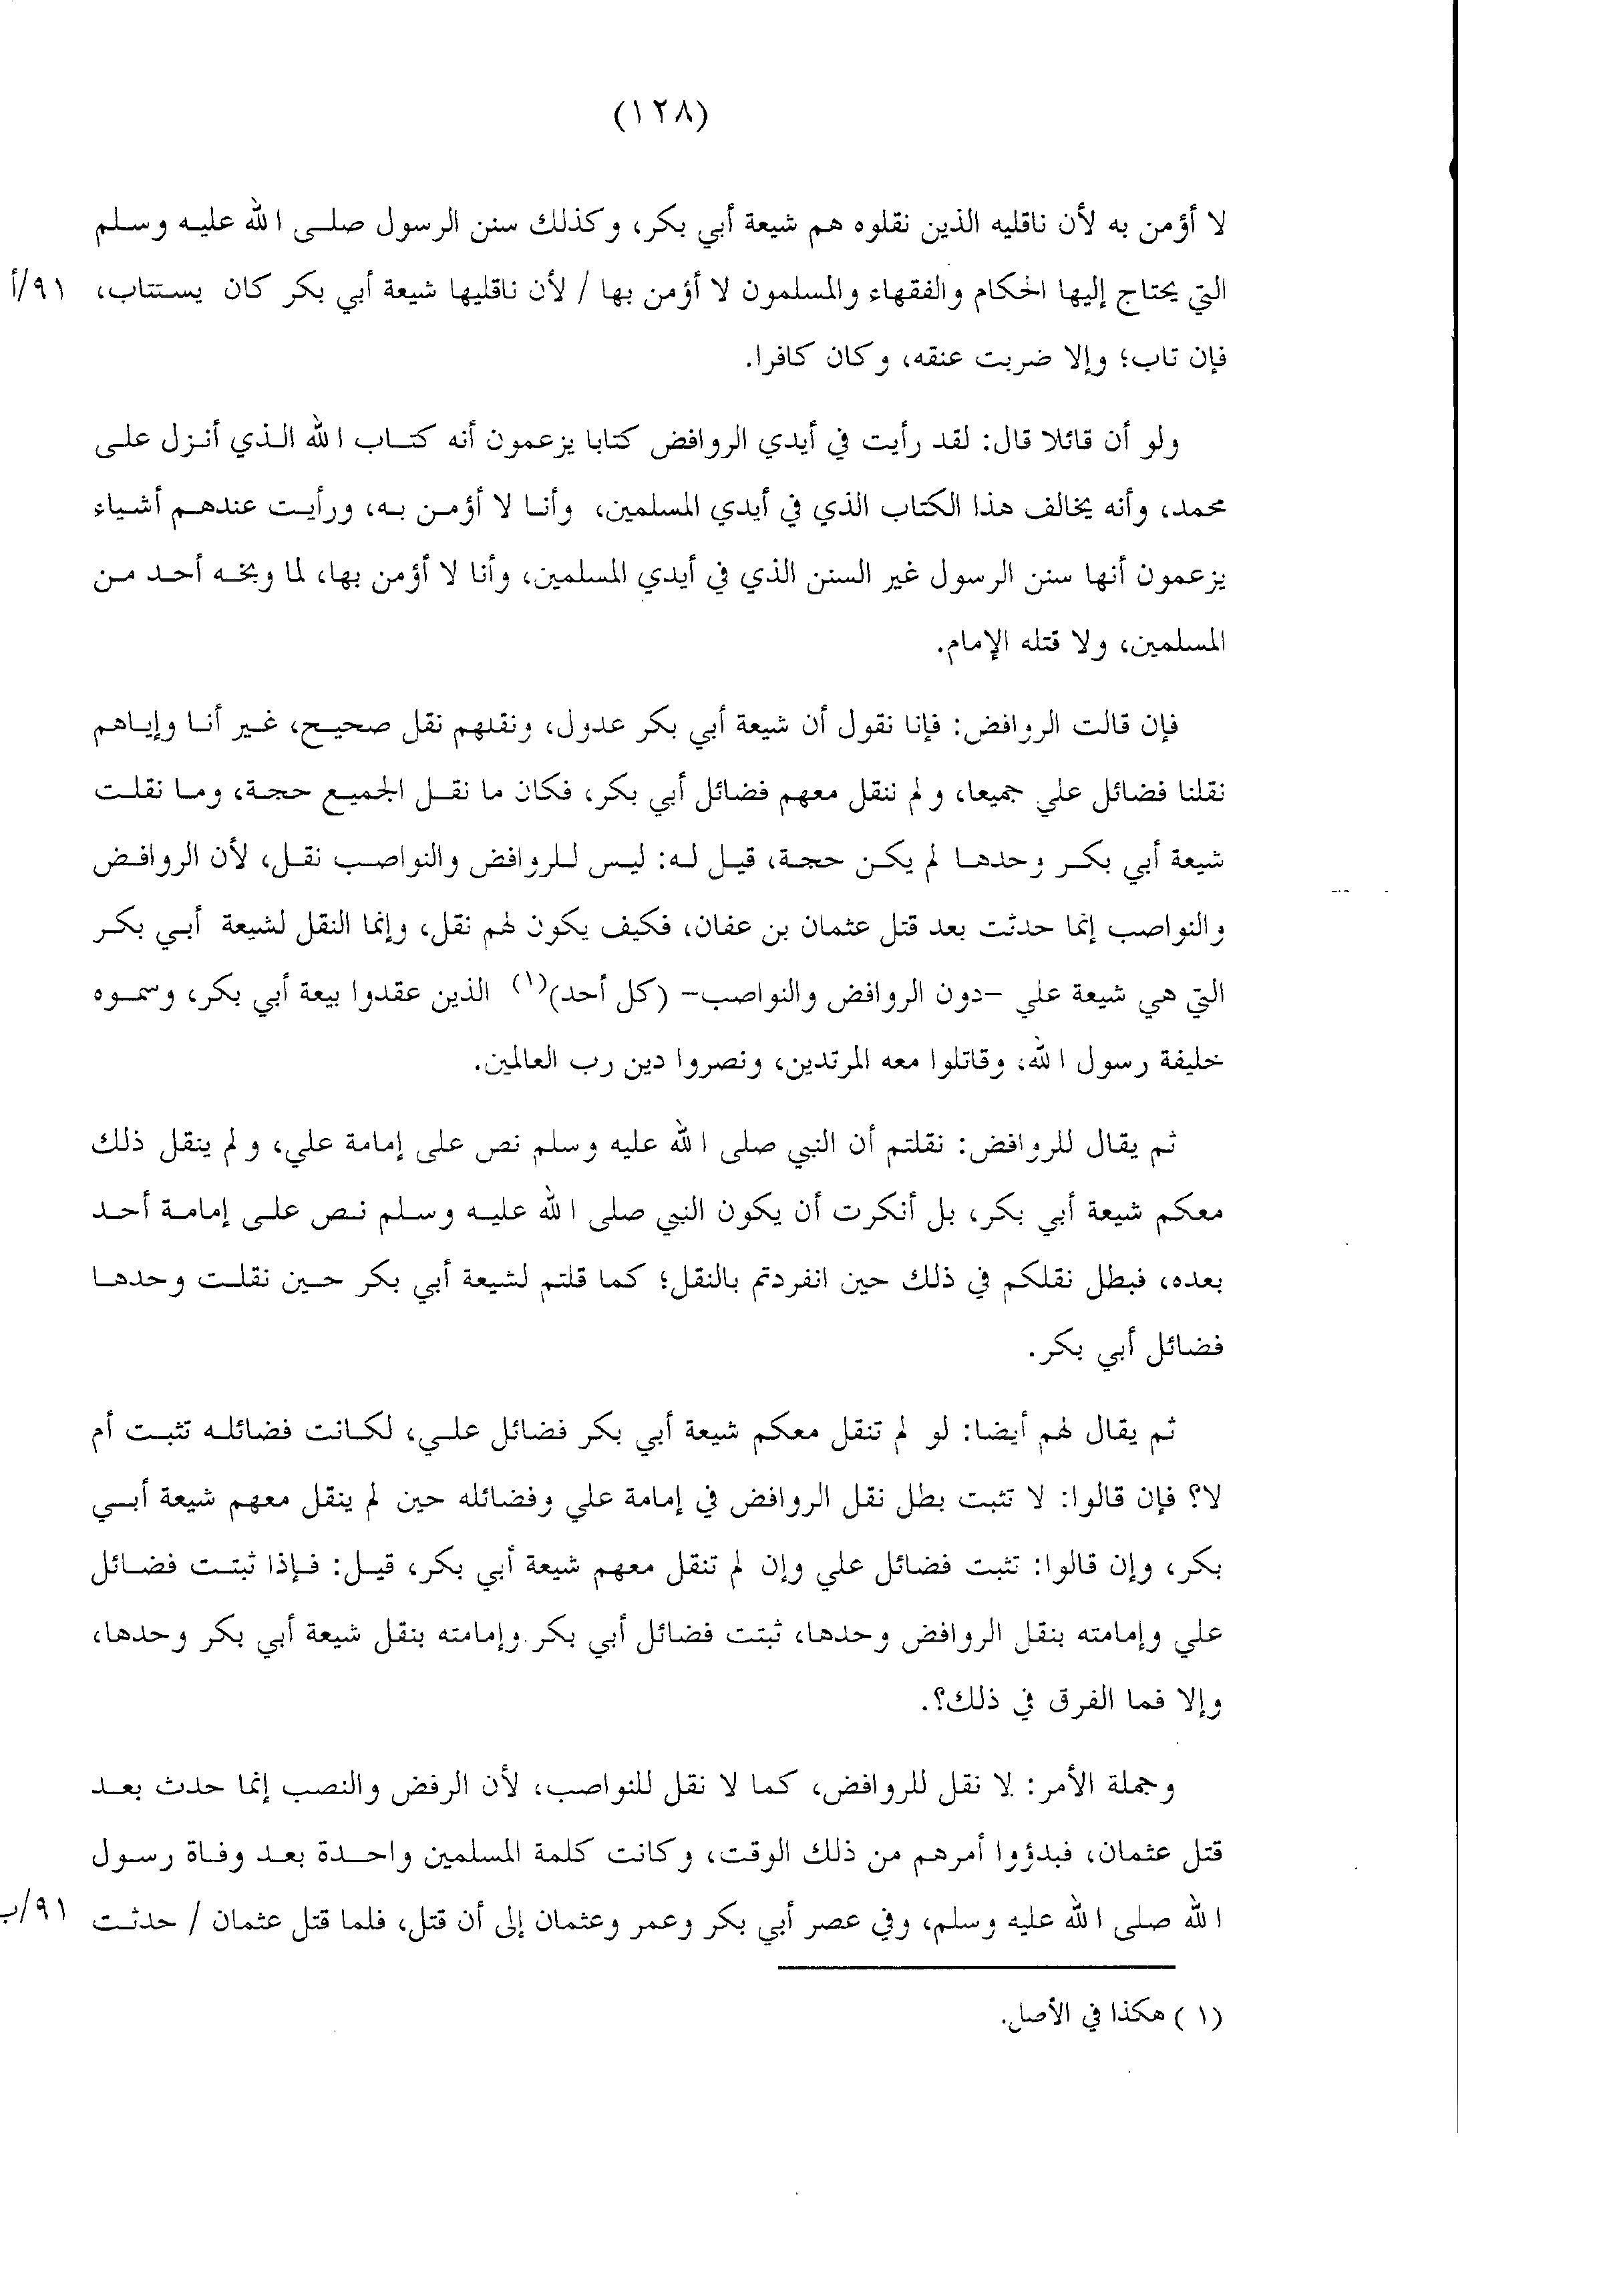 (١٢٨)
لا أؤمن به لأن ناقليه الذين نقلوه هم شيعة أبي بكر، وكذلك سنن الرسول صلى الله عليه وسلم
التي يحتاج إليها الحكام والفقهاء والمسلمون لا أؤمن بها / لأن ناقليها شيعة أبي بكر كان يستتاب، ٩١/أ
فإن تاب؛ وإلا ضربت عنقه، وكان كافرا.
ولو أن قائلا قال: لقد رأيت في أيدي الروافض كتابا يزعمون أنه كتاب الله الذي أنزل على
محمد، وأنه يخالف هذا الكتاب الذي في أيدي المسلمين، وأنا لا أؤمن به، ورأيت عندهم أشياء
يزعمون أنها سنن الرسول غير السنن الذي في أيدي المسلمين، وأنا لا أؤمن بها، لما وبخه أحد من
المسلمين، ولا قتله الإمام.
فإن قالت الروافض: فإنا نقول أن شيعة أبي بكر عدول، ونقلهم نقل صحيح، غير أنا وإياهم
نقلنا فضائل علي جميعا، ولم ننقل معهم فضائل أبي بكر، فكان ما نقل الجميع حجة، وما نقلت
شيعة أبي بكر وحدها لم يكن حجة، قيل له: ليس للروافض والنواصب نقل، لأن الروافض
والنواصب إنما حدثت بعد قتل عثمان بن عفان، فكيف يكون لهم نقل، وإنما النقل لشيعة أبي بكر
التي هي شيعة علي -دون الروافض والنواصب- (كل أحد)(١) الذين عقدوا بيعة أبي بكر، وسموه
خليفة رسول الله، وقاتلوا معه المرتدين، ونصروا دين رب العالمين.
ثم يقال للروافض: نقلتم أن النبي صلى الله عليه وسلم نص على إمامة علي، ولم ينقل ذلك
معكم شيعة أبي بكر، بل أنكرت أن يكون النبي صلى الله عليه وسلم نص على إمامة أحد
بعده، فبطل نقلكم في ذلك حين انفردتم بالنقل؛ كما قلتم لشيعة أبي بكر حين نقلت وحدها
فضائل أبي بكر.
ثم يقال لهم أيضا: لو لم تنقل معكم شيعة أبي بكر فضائل علي، لكانت فضائله تثبت أم
لا؟ فإن قالوا: لا تثبت بطل نقل الروافض في إمامة علي وفضائله حين لم ينقل معهم شيعة أبي
بكر، وإن قالوا: تثبت فضائل علي وإن لم تنقل معهم شيعة أبي بكر، قيل: فإذا ثبتت فضائل
علي وإمامته بنقل الروافض وحدها، ثبتت فضائل أبي بكر وإمامته بنقل شيعة أبي بكر وحدها،
وإلا فما الفرق في ذلك؟.
وجملة الأمر: لا نقل للروافض، كما لا نقل للنواصب، لأن الرفض والنصب إنما حدث بعد
قتل عثمان، فبدؤوا أمرهم من ذلك الوقت، وكانت كلمة المسلمين واحدة بعد وفاة رسول
الله صلى الله عليه وسلم، وفي عصر أبي بكر وعمر وعثمان إلى أن قتل، فلما قتل عثمان / حدثت ٩١/ب
(١) هكذا في الأصل.